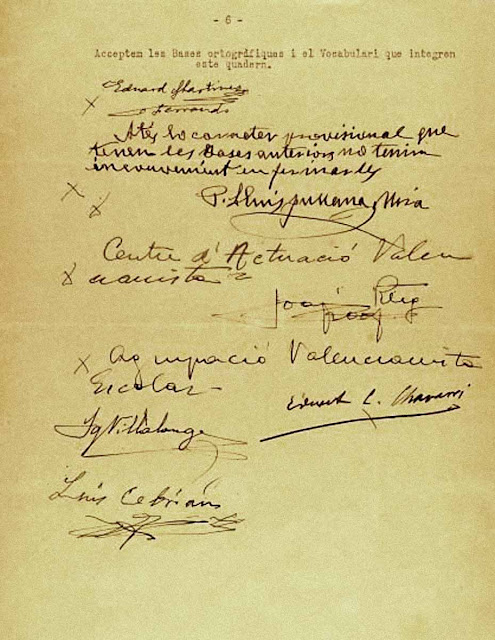 - 6 -
Acceptem les Bases ortogràfiques i el Vocabulari que integren
este quadern.
Eduard Martínez
Ferrando
Atés lo caracter provisional que
tenen les Bases anteriors no tenim
inconvenient en firmarles
P. Lluis Fullana Mira
Centre d'Actuació Valen
cianista
Joaq Reig
Agrupació Valencianista
Escolar
Eduard L. Chavarri
Ig Villalonga
Lluis Cebrián